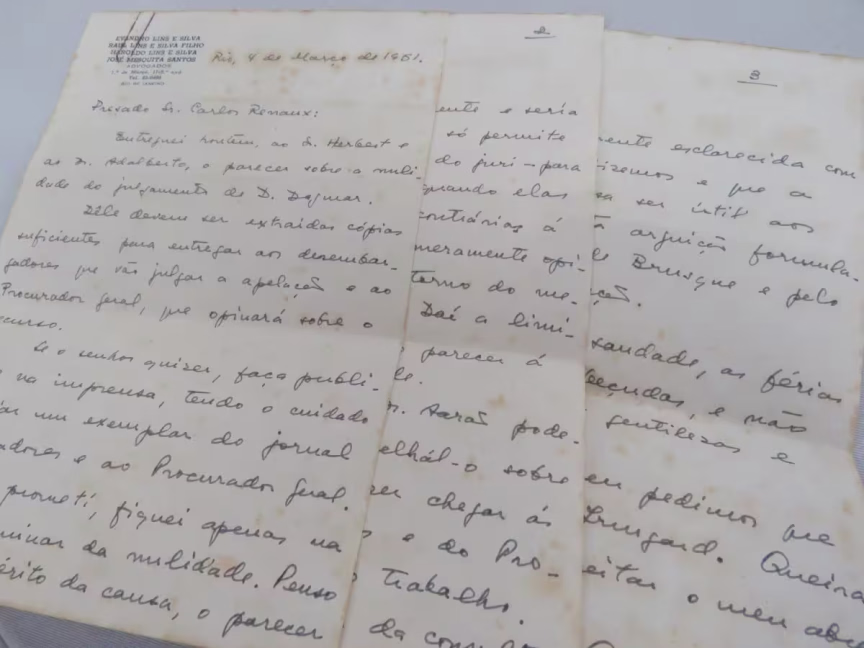 EVANDRO LINS E SILVA
RAUL LINS E SILVA FILHO
HAROLDO LINS E SILVA
JOSÉ MESQUITA SANTOS
ADVOGADOS
RIO DE JANEIRO
Rio, 4 de Março de 1951.
Presado Sr. Carlos Renaux:
Entreguei hontem, ao Dr. Herbert e
ao Dr. Adalberto, o parecer sobre a nuli-
dade do julgamento de D. Dagmar.
Dêle devem ser extraidas cópias
suficientes para entregar aos desembar-
gadores que vão julgar a apelação e ao
Procurador geral, que opinará sobre o
recurso.
Se o senhor quizer, faça publi-
na imprensa, tendo o cuidado
um exemplar do jornal
adores e ao Procurador geral.
prometi, fiquei apenas na
minar da nulidade. Penso
érito da causa, o parecer
2
ente e seria
só permite
do juri - para
quando elas
contrárias á
meramente opi-
terno do me-
Daí a limi-
parecer á
pode-
elhál-o sobre
chegar ás
e do Pro-
trabalho.
da
3
ente esclarecida com
izemos e que a
sa ser util aos
arguição formula-
Brusque e pelo
ção.
saudade, as férias
e não
gentilezas e
eu pedimos que
Irmgard. Queira
eitar o meu